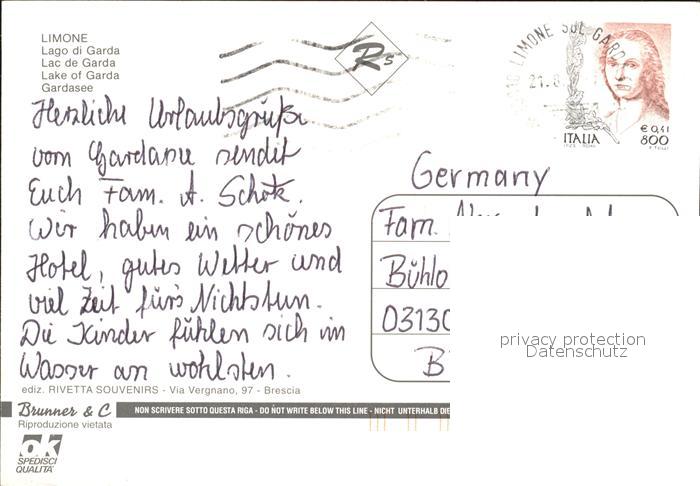 LIMONE
Lago di Garda
Lac de Garda
Lake of Garda
Gardasee
Rs
LIMONE SUL GARD
21.8
ITALIA
€ 0,41
800
Herzliche Urlaubsgrüße
vom Gardasee sendet
Euch Fam. A. Schotz.
Wir haben ein schönes
Hotel, gutes Wetter und
viel Zeit für's Nichtstun.
Die Kinder fühlen sich im
Wasser am wohlsten.
Germany
Fam.
Bühlo
03130
B
privacy protection
Datenschutz
ediz. RIVETTA SOUVENIRS - Via Vergnano, 97 - Brescia
Brunner & C
NON SCRIVERE SOTTO QUESTA RIGA - DO NOT WRITE BELOW THIS LINE - NICHT UNTERHALB DIE
Riproduzione vietata
ok
SPEDISCI
QUALITÀ